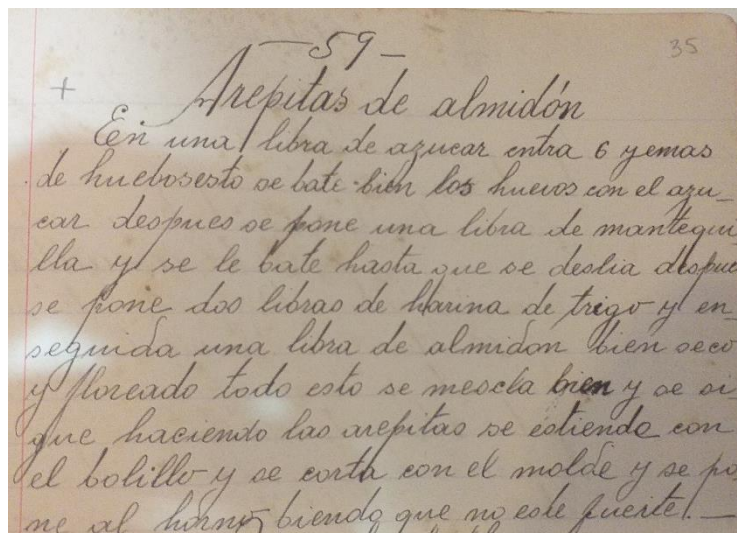 — 59 —
35
+
Arepitas de almidón
En una libra de azucar entra 6 yemas
de huebosesto se bate bien los huevos con el azu_
car despues se pone una libra de mantequi
lla y se le bate hasta que se deslia despues
se pone dos libras de harina de trigo y en_
seguida una libra de almidon bien seco
y floreado todo esto se mescla bien y se si_
gue haciendo las arepitas se estiende con
el bolillo y se corta con el molde y se po
ne al horno biendo que no este fuerte. —